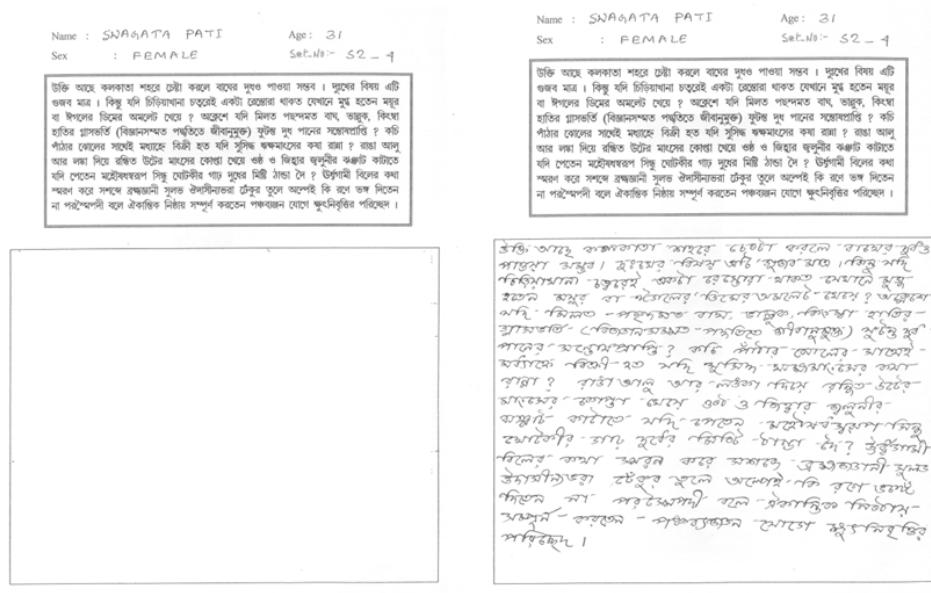 Name : SWAGATA PATI Age : 31
Sex : FEMALE Set.No:- S2-4
উক্তি আছে কলকাতা শহরে চেষ্টা করলে বাঘের দুধও পাওয়া সম্ভব । দুঃখের বিষয় এটি
গুজব মাত্র । কিন্তু যদি চিড়িয়াখানা চত্বরেই একটা রেস্তোরা থাকত যেখানে মুগ্ধ হতেন ময়ূর
বা ঈগলের ডিমের অমলেট খেয়ে ? অক্লেশে যদি মিলত পছন্দমত বাঘ, ভাল্লুক, কিংম্বা
হাতির গ্লাসভর্তি (বিজ্ঞানসম্মত পদ্ধতিতে জীবানুমুক্ত) ফুটন্ত দুধ পানের সন্তোষপ্রাপ্তি ? কচি
পাঁঠার ঝোলের সাথেই মধ্যাহ্নে বিক্রী হত যদি সুসিদ্ধ ঋক্ষমাংসের কষা রান্না ? রাঙা আলু
আর লঙ্কা দিয়ে রন্ধিত উটের মাংসের কোপ্তা খেয়ে ওষ্ঠ ও জিহ্বার জ্বলুনীর ঝঞ্ঝাট কাটাতে
যদি পেতেন মহৌষধস্বরূপ সিন্ধু ঘোটকীর গাঢ় দুধের মিষ্টি ঠান্ডা দৈ ? ঊর্ধ্বগামী বিলের কথা
স্মরণ করে সশব্দে ব্রহ্মজ্ঞানী সুলভ ঔদাসীন্যভরা ঢেঁকুর তুলে অল্পেই কি রণে ভঙ্গ দিতেন
না পরস্মৈপদী বলে ঐকান্তিক নিষ্ঠায় সম্পূর্ণ করতেন পঞ্চব্যঞ্জন যোগে ক্ষুৎনিবৃত্তির পরিচ্ছেদ ।
Name : SWAGATA PATI Age : 31
Sex : FEMALE Set.No:- S2-4
উক্তি আছে কলকাতা শহরে চেষ্টা করলে বাঘের দুধও পাওয়া সম্ভব । দুঃখের বিষয় এটি
গুজব মাত্র । কিন্তু যদি চিড়িয়াখানা চত্বরেই একটা রেস্তোরা থাকত যেখানে মুগ্ধ হতেন ময়ূর
বা ঈগলের ডিমের অমলেট খেয়ে ? অক্লেশে যদি মিলত পছন্দমত বাঘ, ভাল্লুক, কিংম্বা
হাতির গ্লাসভর্তি (বিজ্ঞানসম্মত পদ্ধতিতে জীবানুমুক্ত) ফুটন্ত দুধ পানের সন্তোষপ্রাপ্তি ? কচি
পাঁঠার ঝোলের সাথেই মধ্যাহ্নে বিক্রী হত যদি সুসিদ্ধ ঋক্ষমাংসের কষা রান্না ? রাঙা আলু
আর লঙ্কা দিয়ে রন্ধিত উটের মাংসের কোপ্তা খেয়ে ওষ্ঠ ও জিহ্বার জ্বলুনীর ঝঞ্ঝাট কাটাতে
যদি পেতেন মহৌষধস্বরূপ সিন্ধু ঘোটকীর গাঢ় দুধের মিষ্টি ঠান্ডা দৈ ? ঊর্ধ্বগামী বিলের কথা
স্মরণ করে সশব্দে ব্রহ্মজ্ঞানী সুলভ ঔদাসীন্যভরা ঢেঁকুর তুলে অল্পেই কি রণে ভঙ্গ দিতেন
না পরস্মৈপদী বলে ঐকান্তিক নিষ্ঠায় সম্পূর্ণ করতেন পঞ্চব্যঞ্জন যোগে ক্ষুৎনিবৃত্তির পরিচ্ছেদ ।
উক্তি আছে কলকাতা শহরে চেষ্টা করলে বাঘের দুধও
পাওয়া সম্ভব। দুঃখের বিষয় এটি গুজব মাত্র। কিন্তু যদি
চিড়িয়াখানা চত্বরেই একটা রেস্তোরা থাকত যেখানে মুগ্ধ
হতেন ময়ূর বা ঈগলের ডিমের অমলেট খেয়ে? অক্লেশে
যদি মিলত পছন্দমত বাঘ, ভাল্লুক, কিংম্বা হাতির
গ্লাসভর্তি (বিজ্ঞানসম্মত পদ্ধতিতে জীবানুমুক্ত) ফুটন্ত দুধ
পানের সন্তোষপ্রাপ্তি? কচি পাঁঠার ঝোলের সাথেই
মধ্যাহ্নে বিক্রী হত যদি সুসিদ্ধ কষা
রান্না? রাঙা আলু আর লঙ্কা দিয়ে রন্ধিত উটের
মাংসের কোপ্তা খেয়ে ওষ্ঠ ও জিহ্বার জ্বলুনীর
ঝঞ্ঝাট কাটাতে যদি পেতেন মহৌষধস্বরূপ সিন্ধু
ঘোটকীর গাঢ় দুধের মিষ্টি ঠান্ডা দৈ? ঊর্ধ্বগামী
বিলের কথা স্মরণ করে সশব্দে ব্রহ্মজ্ঞানী সুলভ
ঔদাসীন্যভরা ঢেঁকুর তুলে অল্পেই কি রণে
দিতেন না পরস্মৈপদী বলে ঐকান্তিক নিষ্ঠায়
সম্পূর্ণ করতেন পঞ্চব্যঞ্জন যোগে ক্ষুৎনিবৃত্তির
পরিচ্ছেদ।